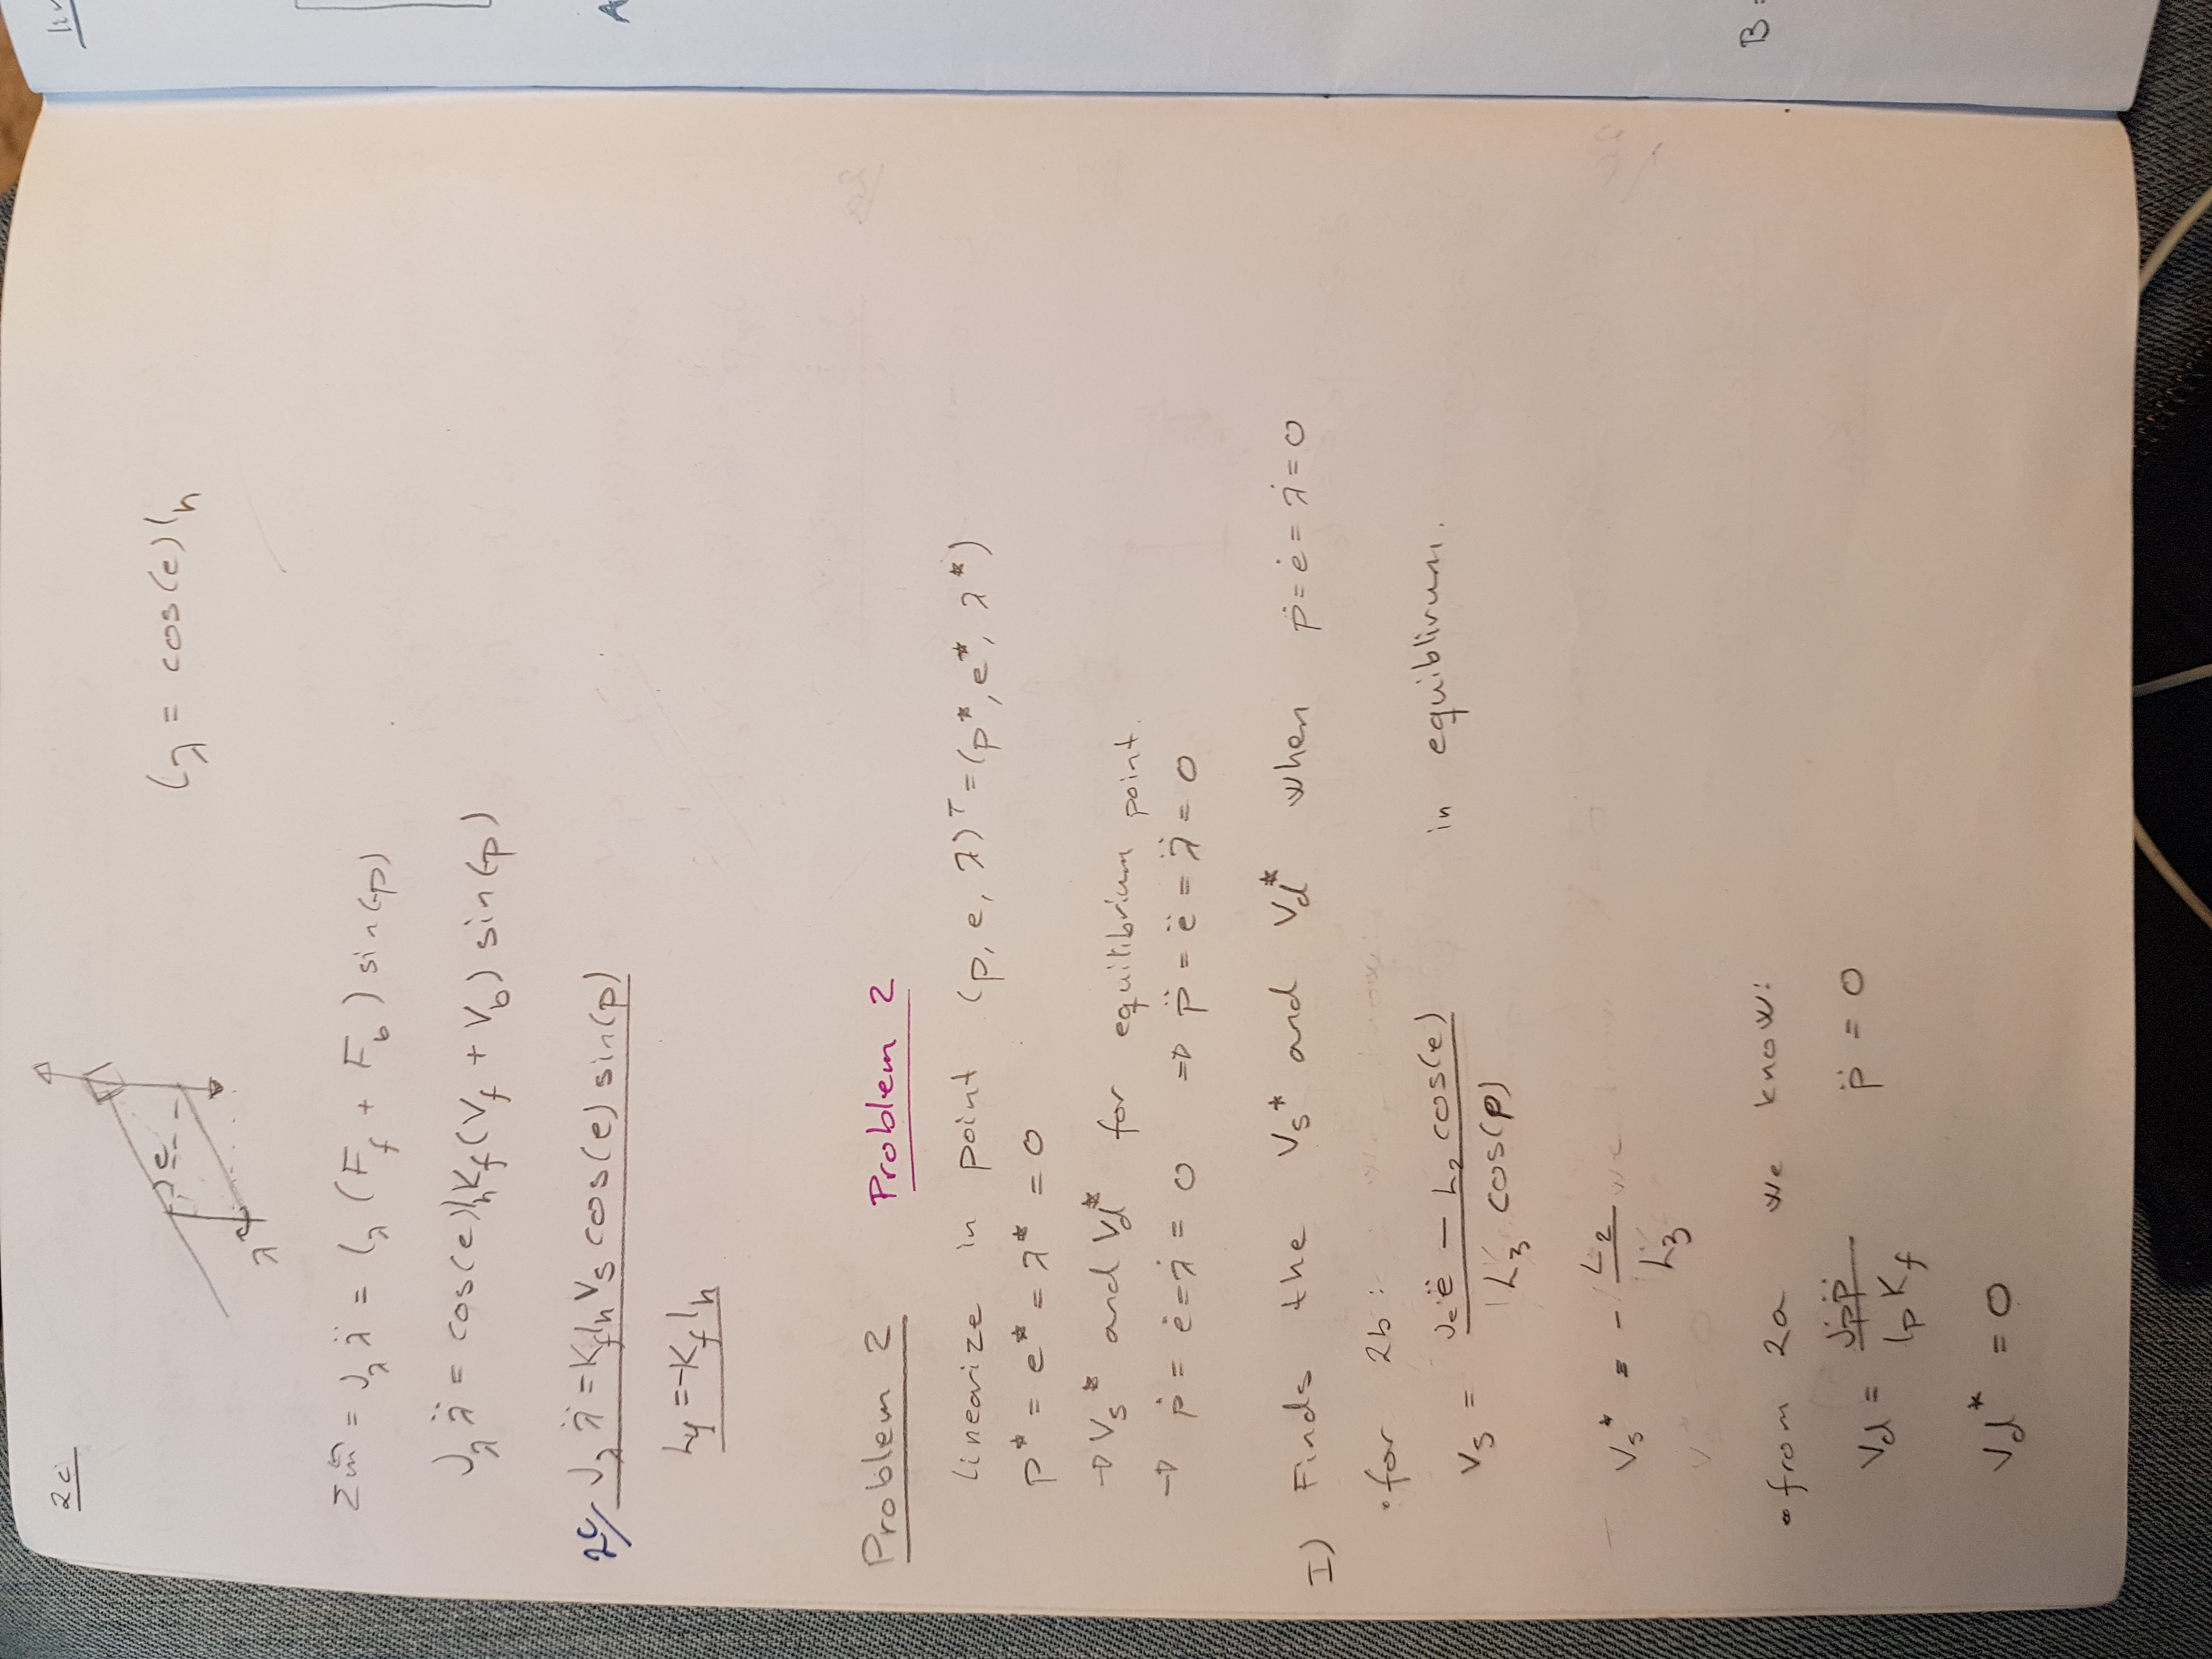 2c
e
λ
l_λ = cos(e) l_h
Σm = J_λ λ̈ = l_λ (F_f + F_b) sin(-p)
J_λ λ̈ = cos(e) l_h K_f (V_f + V_b) sin(-p)
2c/ J_λ λ̈ = K_f l_h V_s cos(e) sin(p)
L_4 = -K_f l_h
Problem 2 Problem 2
linearize in point (p, e, λ)^T = (p*, e*, λ*)
p* = e* = λ* = 0
→ V_s* and V_d* for equilibrium point.
→ ṗ = ė = λ̇ = 0 ⇒ p̈ = ë = λ̈ = 0
I) Finds the V_s* and V_d* when ṗ = ė = λ̇ = 0
• for 2b:
V_s = (J_e ë - L_2 cos(e)) / (L_3 cos(p)) in equiblirum.
V_s* = - L_2 / L_3
• from 2a we know:
V_d = J_p p̈ / (l_p K_f) p̈ = 0
V_d* = 0
A
B =